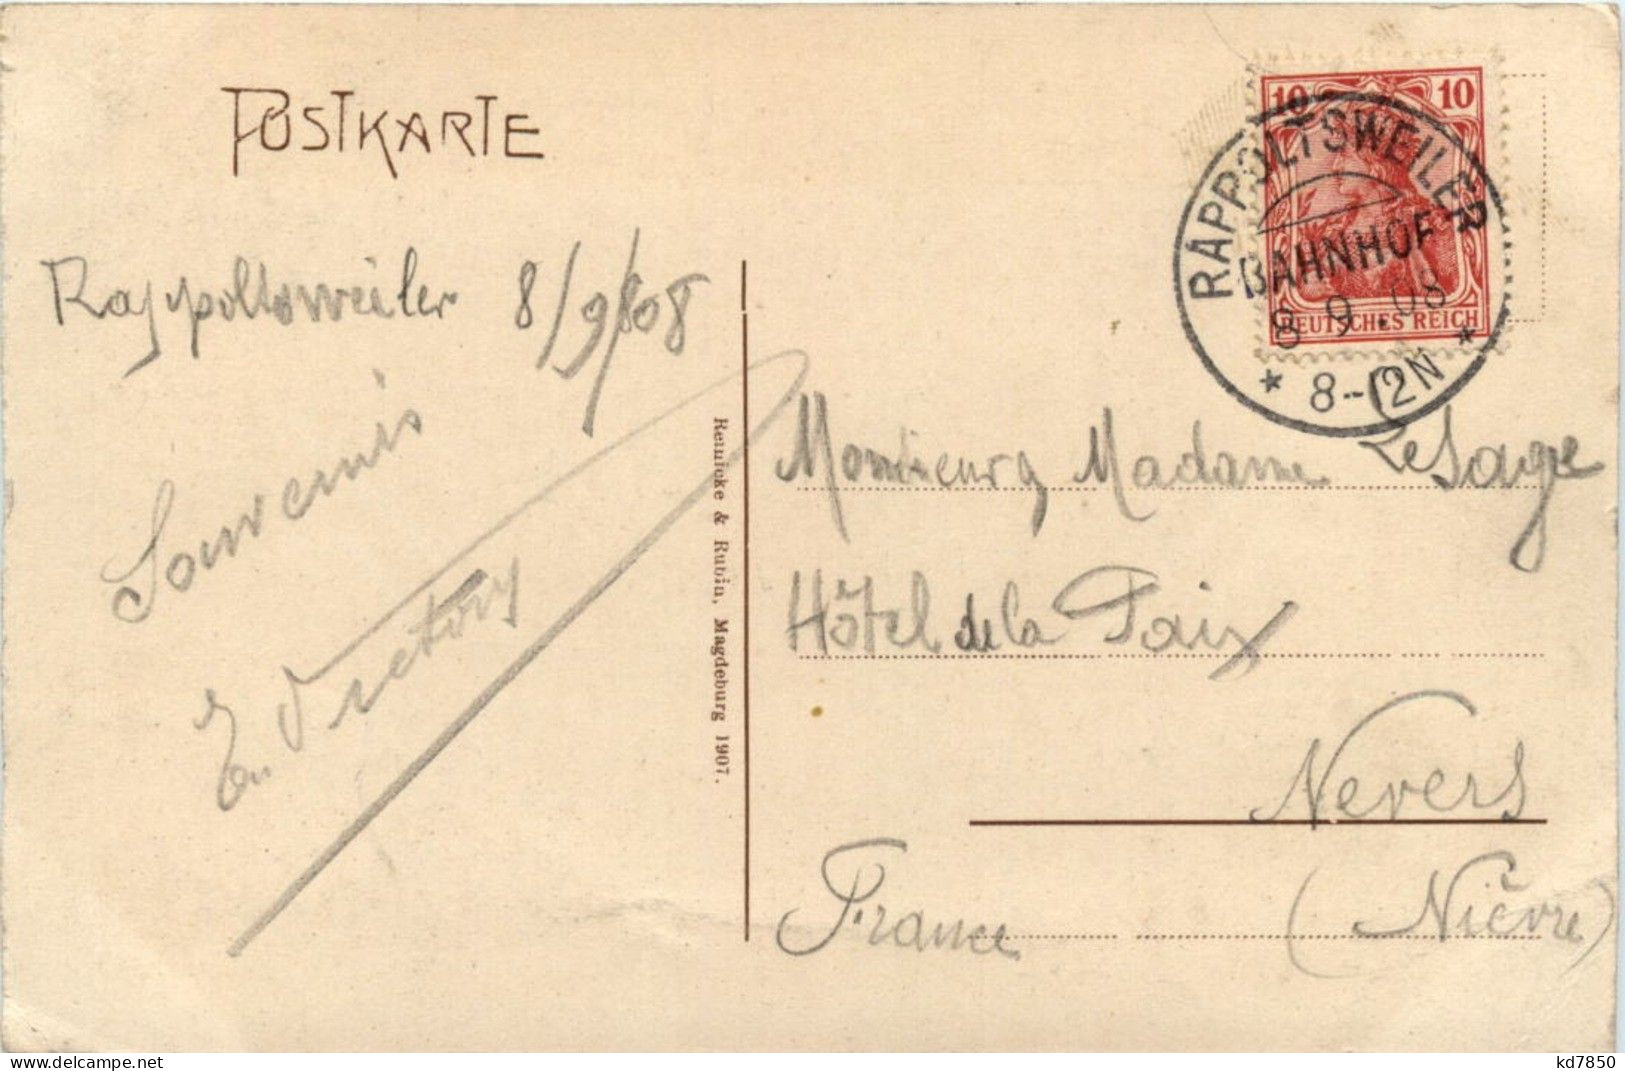 POSTKARTE
Rappoltsweiler 8/9/08
Souvenirs
Reinicke & Rubin, Magdeburg 1907.
10 10
DEUTSCHES REICH
RAPPOLTSWEILER
BAHNHOF
8 9.08
* 8-12N *
Monsieur Madame Le Sage
Hôtel de la Paix
Nevers
France (Nièvre)
www.delcampe.net
kd7850